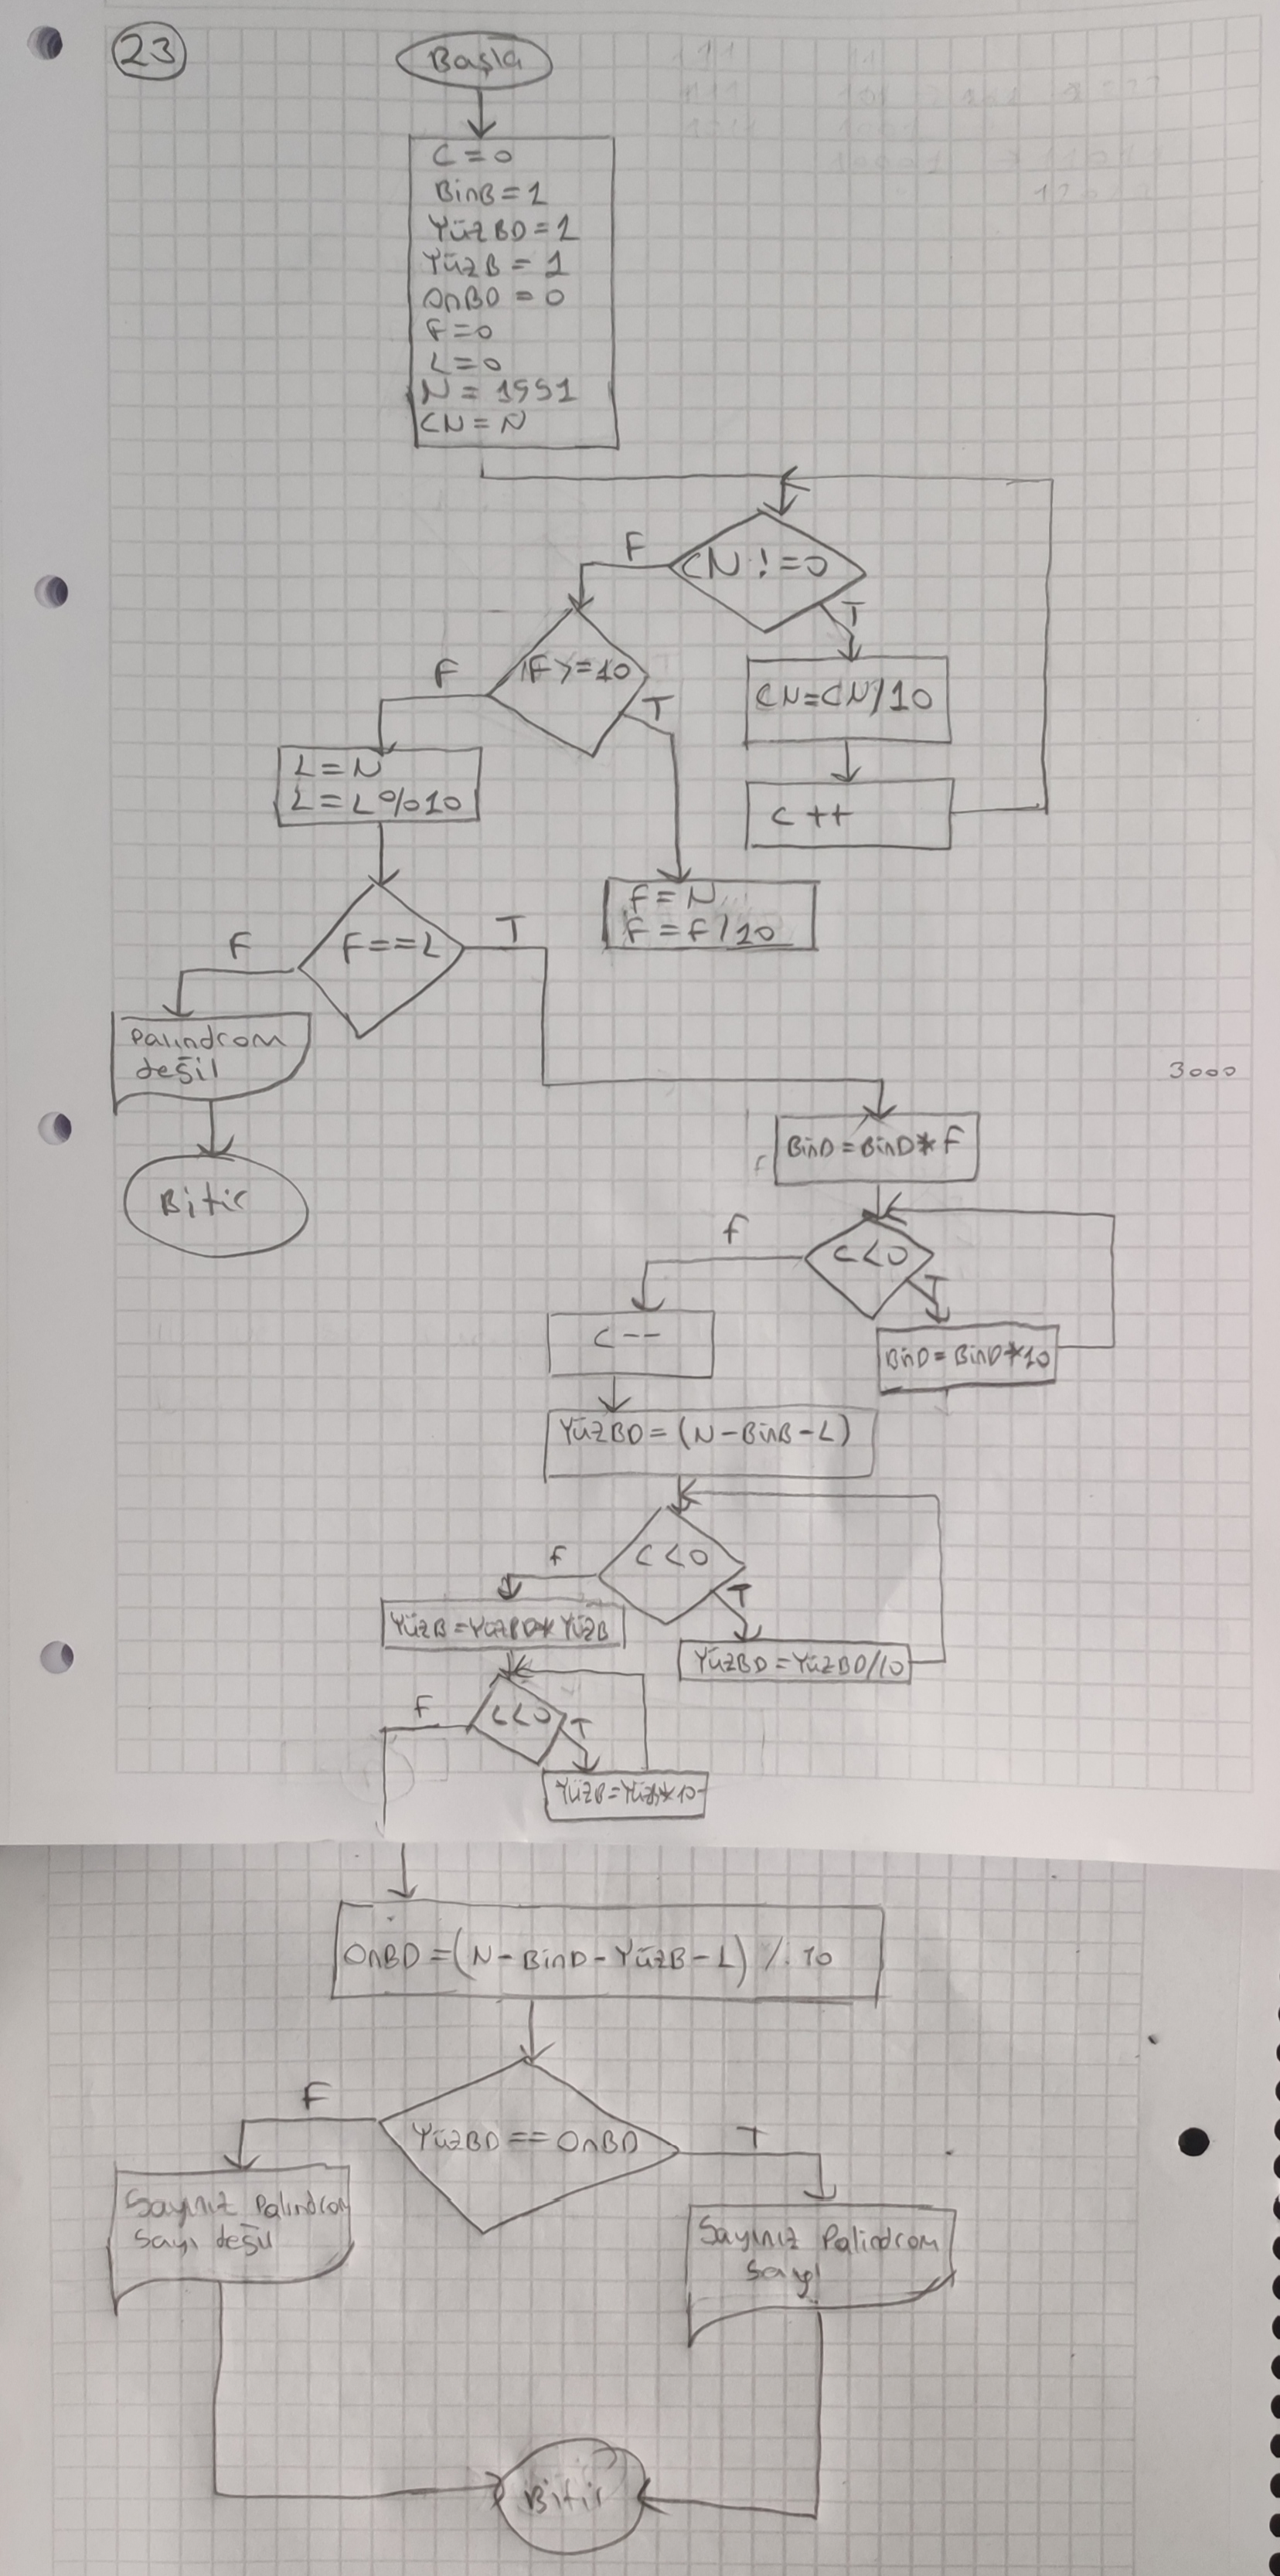 23
Başla
C=0
BinB=1
YüzBD=1
YüzB=1
OnBD=0
F=0
L=0
N=1991
CN=N
CN!=0
F
T
F>=10
F
T
CN=CN/10
C++
L=N
L=L%10
F=N
F=F/10
F==L
F
T
Palındrom
değil
Bitir
3000
BinD=BinD*F
C<0
F
T
C--
BinD=BinD*10
YüzBD=(N-BinB-L)
C<0
F
T
YüzB=YüzBD*YüzB
YüzBD=YüzBD/10
C<0
F
T
YüzB=YüzB*10
OnBD=(N-BinD-YüzB-L)%10
YüzBD==OnBD
F
T
Sayınız Palındrom
Sayı değil
Sayınız Palindrom
Sayı
Bitir